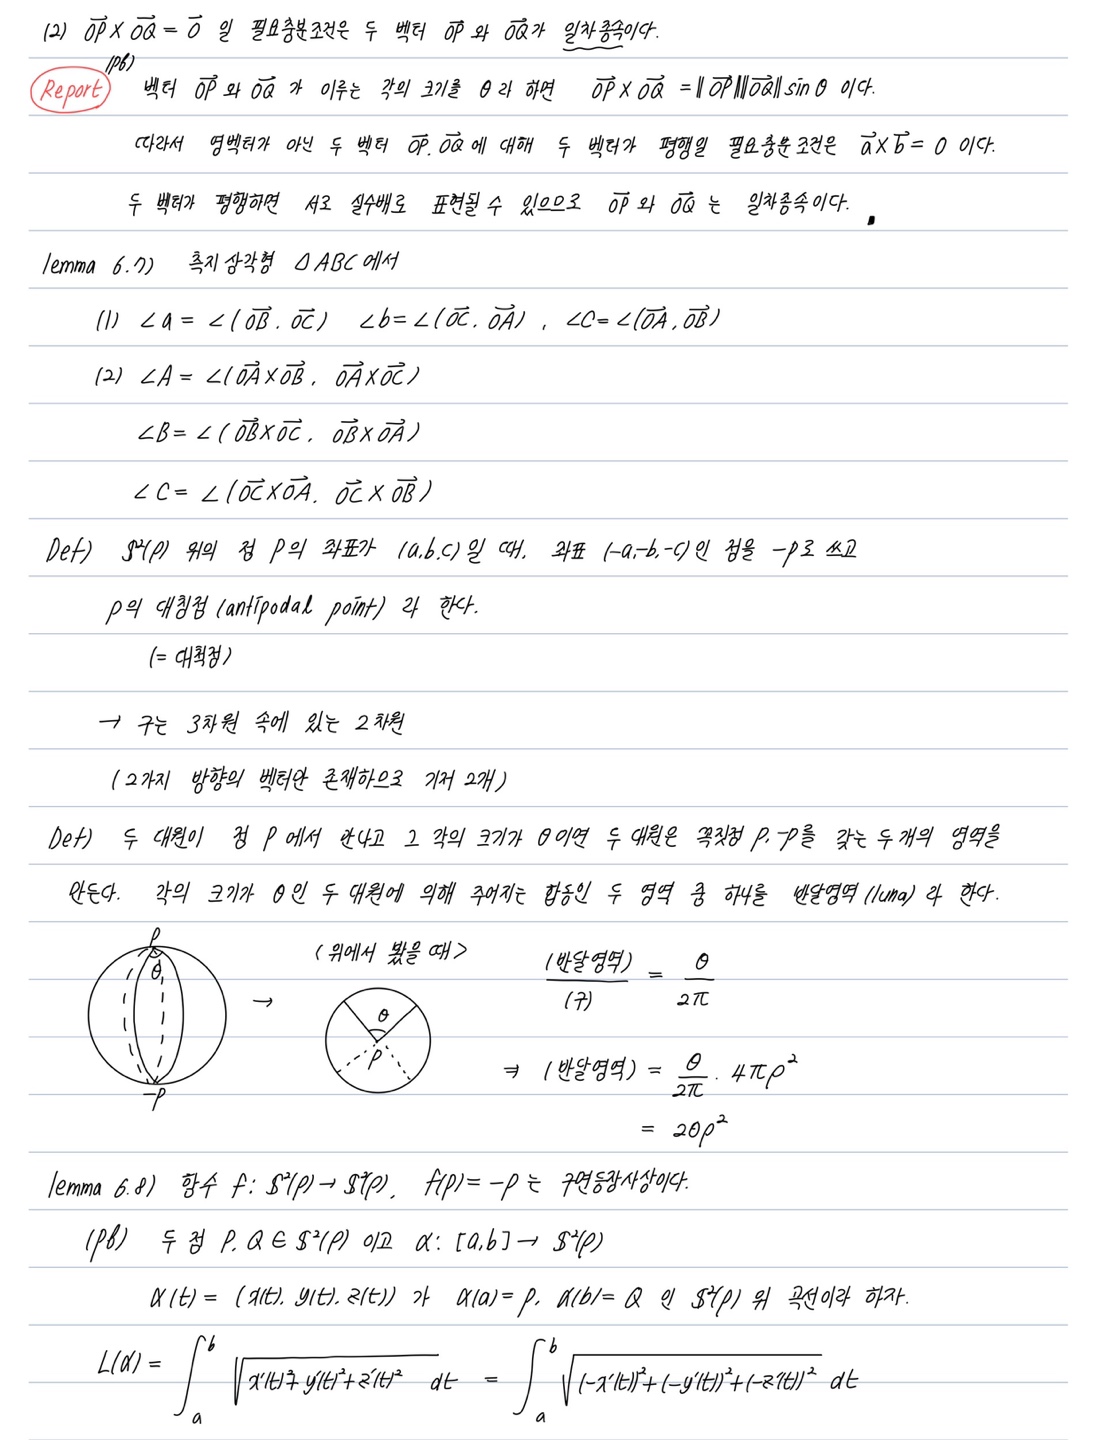 (2) OP⃗ × OQ⃗ = O⃗ 일 필요충분조건은 두 벡터 OP⃗ 와 OQ⃗가 일차종속이다.
Report (pf) 벡터 OP⃗ 와 OQ⃗ 가 이루는 각의 크기를 θ라 하면 OP⃗ × OQ⃗ = ‖OP⃗‖‖OQ⃗‖ sin θ 이다.
따라서 영벡터가 아닌 두 벡터 OP⃗, OQ⃗에 대해 두 벡터가 평행일 필요충분조건은 a⃗ × b⃗ = 0 이다.
두 벡터가 평행하면 서로 실수배로 표현될 수 있으므로 OP⃗ 와 OQ⃗ 는 일차종속이다.
lemma 6.7) 측지삼각형 △ABC에서
(1) ∠a = ∠(OB⃗, OC⃗) ∠b = ∠(OC⃗, OA⃗), ∠C = ∠(OA⃗, OB⃗)
(2) ∠A = ∠(OA⃗ × OB⃗, OA⃗ × OC⃗)
∠B = ∠(OB⃗ × OC⃗, OB⃗ × OA⃗)
∠C = ∠(OC⃗ × OA⃗, OC⃗ × OB⃗)
Def) S²(ρ) 위의 점 P의 좌표가 (a,b,c)일 때, 좌표 (-a,-b,-c)인 점을 -P로 쓰고
P의 대칭점 (antipodal point) 라 한다.
(= 대척점)
→ 구는 3차원 속에 있는 2차원
(2가지 방향의 벡터만 존재하므로 기저 2개)
Def) 두 대원이 점 P에서 만나고 그 각의 크기가 θ이면 두 대원은 꼭짓점 P, -P를 갖는 두개의 영역을
만든다. 각의 크기가 θ인 두 대원에 의해 주어지는 합동인 두 영역 중 하나를 반달영역 (luna) 라 한다.
P
θ
-P
→
<위에서 봤을 때>
θ
P
(반달영역)/(구) = θ/2π
⇒ (반달영역) = θ/2π · 4πρ²
= 2θρ²
lemma 6.8) 함수 f: S²(ρ) → S²(ρ), f(p) = -p 는 구면등장사상이다.
(pf) 두 점 P, Q ∈ S²(ρ) 이고 α: [a,b] → S²(ρ)
α(t) = (x(t), y(t), z(t)) 가 α(a) = P, α(b) = Q 인 S²(ρ) 위 곡선이라 하자.
L(α) = ∫ₐᵇ √(x'(t)² + y'(t)² + z'(t)²) dt = ∫ₐᵇ √((-x'(t))² + (-y'(t))² + (-z'(t))²) dt